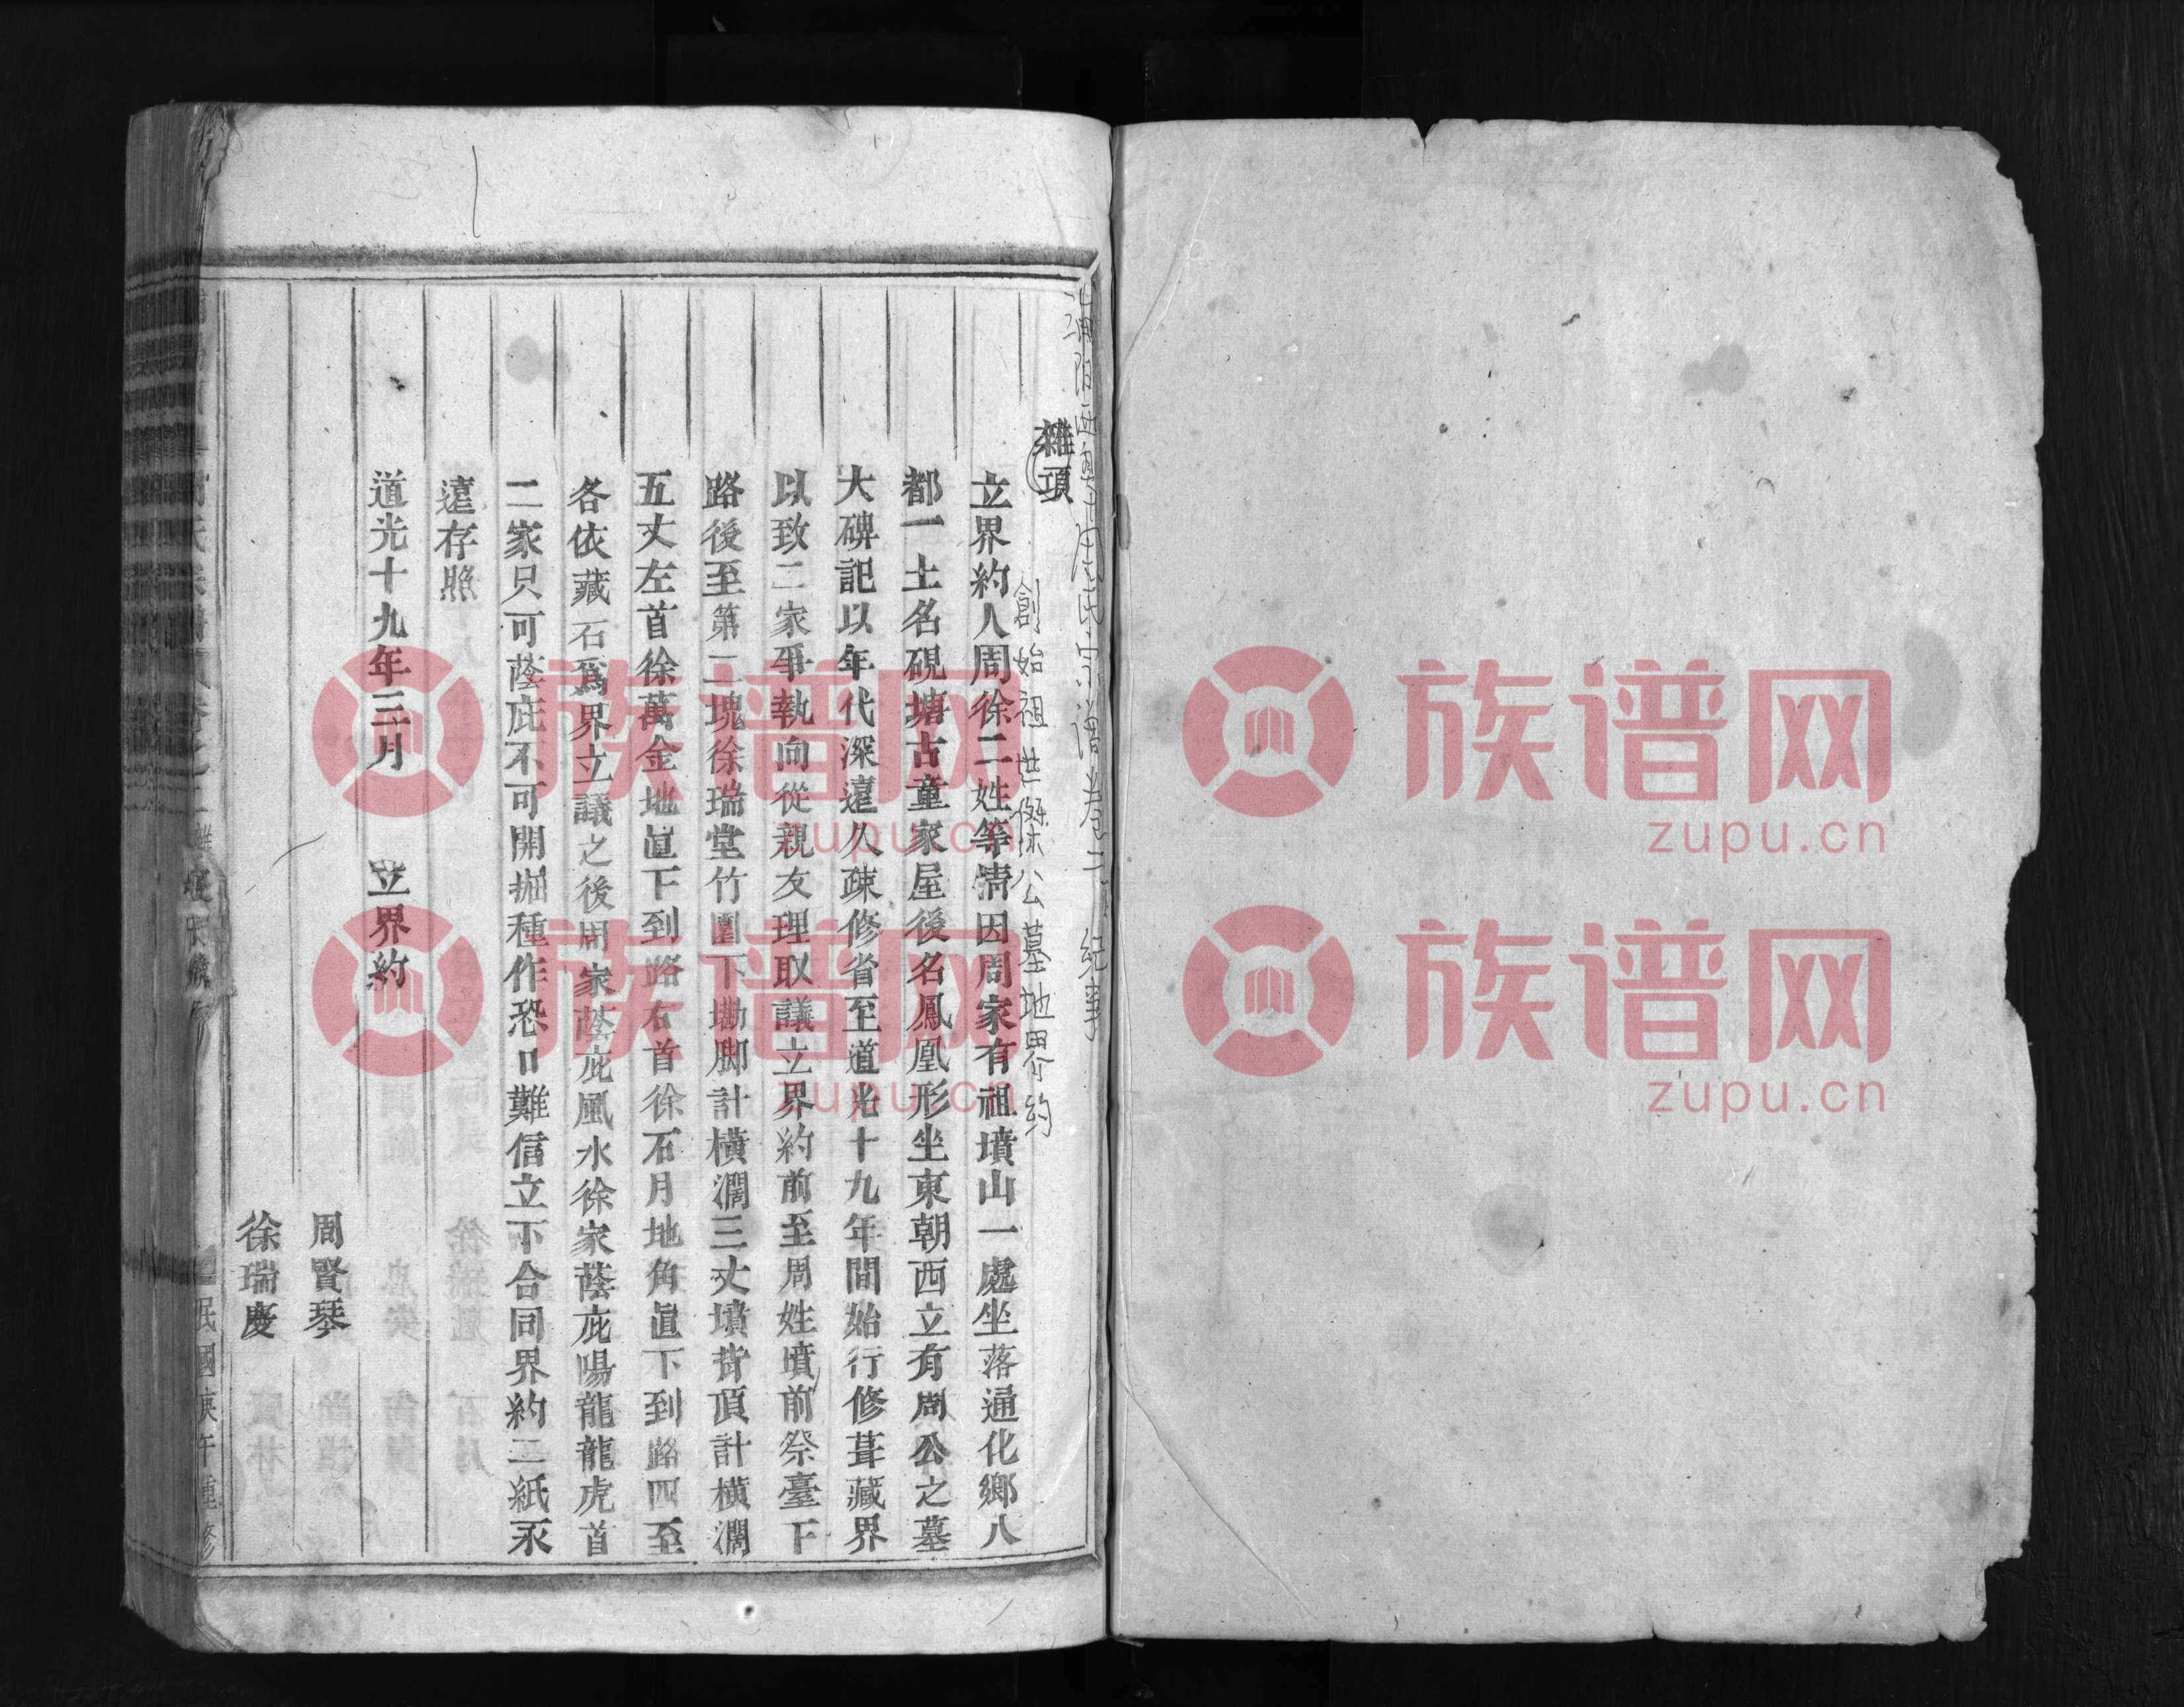 雜項
創始祖世傑公墓地界約
立界約人周徐二姓等情因周家有祖墳山一處坐落通化鄉八
都一土名硯塘古童家屋後名鳳凰形坐東朝西立有周公之墓
大碑記以年代深遠久疎修省至道光十九年間始行修葺藏界
以致二家爭執向從親友理取議立界約前至周姓墳前祭臺下
路後至第二塊徐瑞堂竹園下勘脚計橫濶三丈墳背頂計橫濶
五丈左首徐萬金地直下到路右首徐石月地角直下到路四至
各依藏石爲界立議之後周家蔭庇風水徐家蔭庇陽龍龍虎首
二家只可蔭庇不可開掘種作恐口難信立下合同界約二紙永
遠存照
道光十九年三月　立界約
周賢琴
徐瑞慶
民國庚午重修
族谱网
zupu.cn
族谱网
zupu.cn
族谱网
zupu.cn
族谱网
zupu.cn